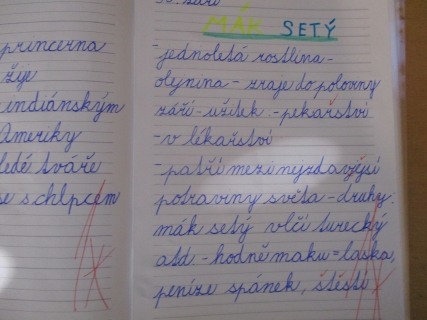 princezna
žije
indiánským
Ameriky
ledé tváře
se s chlpcem
30. září
MÁK SETÝ
-jednoletá rostlina-
olejnina - zraje do poloviny
září - užitek - pekařství
- v lékařství
- patří mezi nejzdravější
potraviny světa - druhy:
mák setý vlčí turecký
atd - hodně maku = láska,
peníze spánek, štěstí